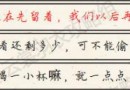 在先留着，我们以后再
看还剩多少，可不能偷
喝一小杯嘛，就一点点